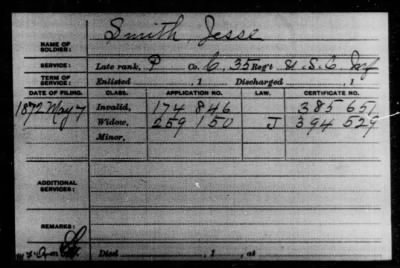 Smith, Jesse
NAME OF SOLDIER:
SERVICE: Late rank, P Co. C, 35 Reg't U.S.C. Inf
TERM OF SERVICE: Enlisted , 1 Discharged , 1
DATE OF FILING. CLASS. APPLICATION NO. LAW. CERTIFICATE NO.
1872 May 7 Invalid, 174 846 385 651
Widow, 259 150 J 394 529
Minor,
ADDITIONAL SERVICES:
REMARKS:
Died , 1 , at